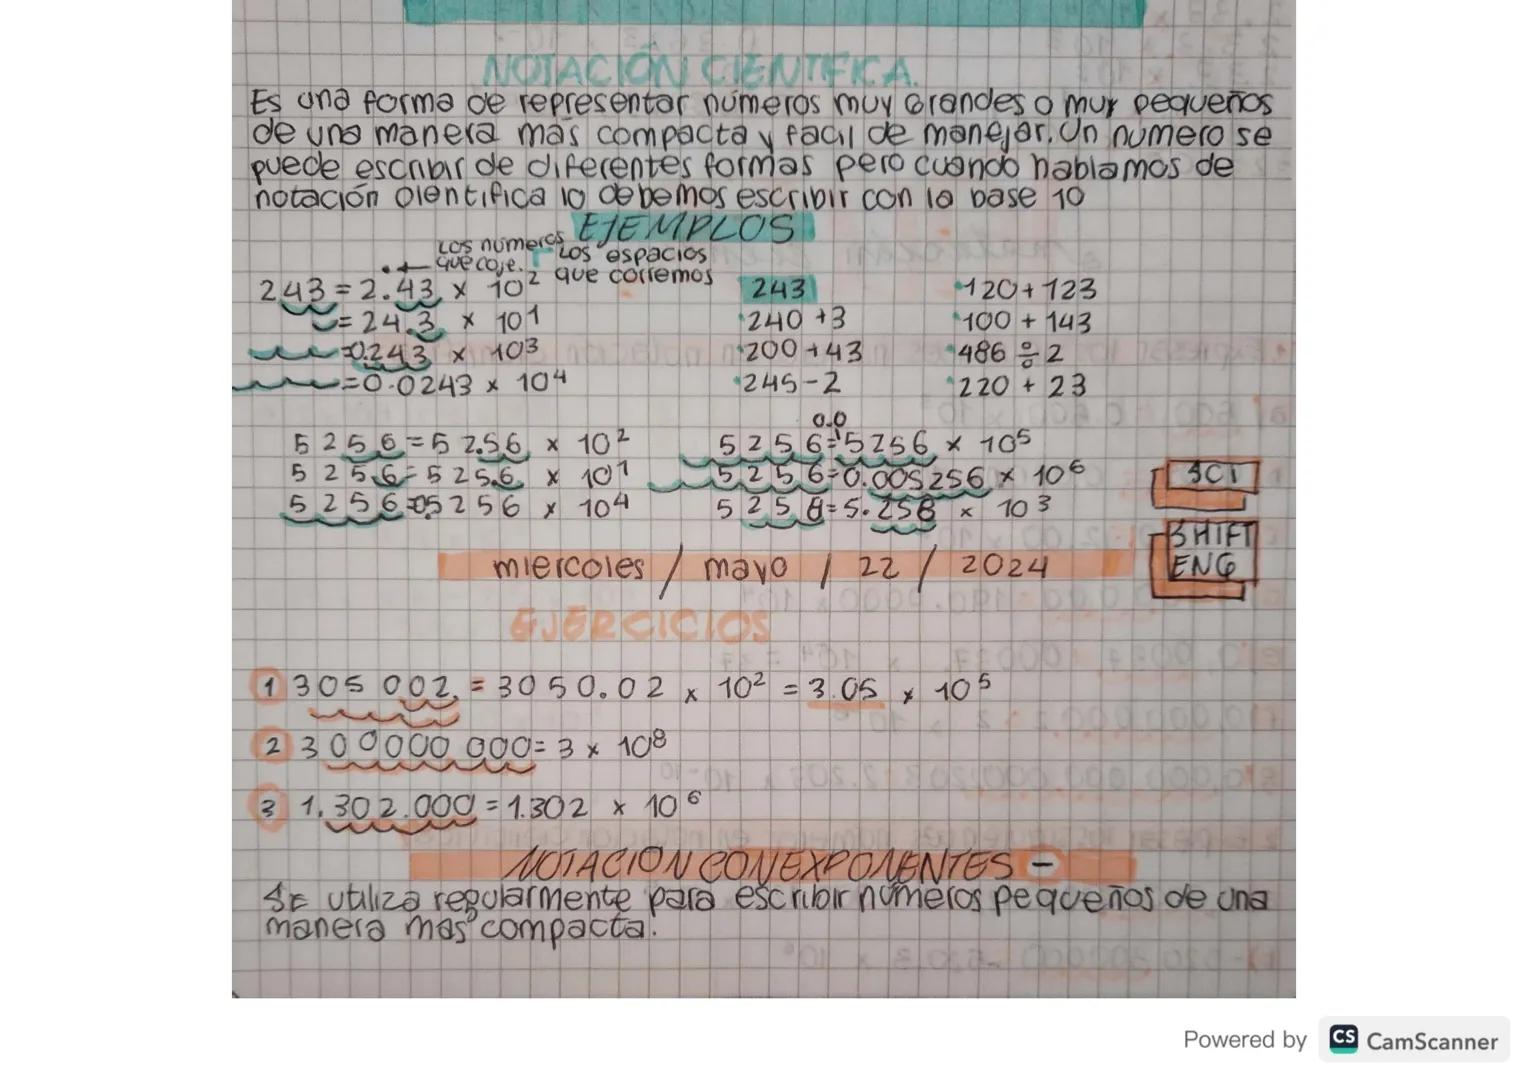 NOTACIÓN CIENTIFICA.
Es una forma de representar números muy Grandes o muy pequeños
de una manera más compacta y facil de manejar. Un numero se
puede escribir de diferentes formas pero cuando hablamos de
notación cientifica lo debemos escribir con la base 10
EJEMPLOS
Los numeros que coje.
Los espacios que corremos
243 = 2.43 x 10²
= 24.3 x 10¹
=0.243 x 10³
=0.0243 x 10⁴
243
·240 +3
·200 +43
·245-2
·120+123
·100 + 143
·486 ÷ 2
·220 + 23
5256=52.56 x 10²
5256=525.6 x 10¹
5256=05256 x 10⁴
0.0
5256=5256 x 10⁵
5256=0.005256 x 10⁶
5256=5.256 x 10³
SCI
SHIFT
ENG
miercoles / mayo / 22 / 2024
EJERCICIOS
1 305 002. = 3050.02 x 10² = 3.05 x 10⁵
2 300000 000= 3 x 10⁸
3 1.302.000 = 1.302 x 10⁶
NOTACION CON EXPONENTES -
Se utiliza regularmente para escribir números pequeños de una
manera mas compacta.
Powered by CS CamScanner